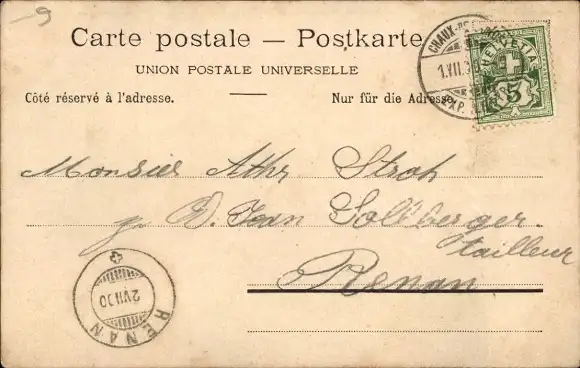 -9
Carte postale — Postkarte
UNION POSTALE UNIVERSELLE
Côté réservé à l'adresse.
Nur für die Adresse
CHAUX-DE-
1.VII.
EXP.
HELVETIA
5
Monsieur Athr Stroh
D. Jean Sollberger
tailleur
Renan
RENAN
2.VII.00